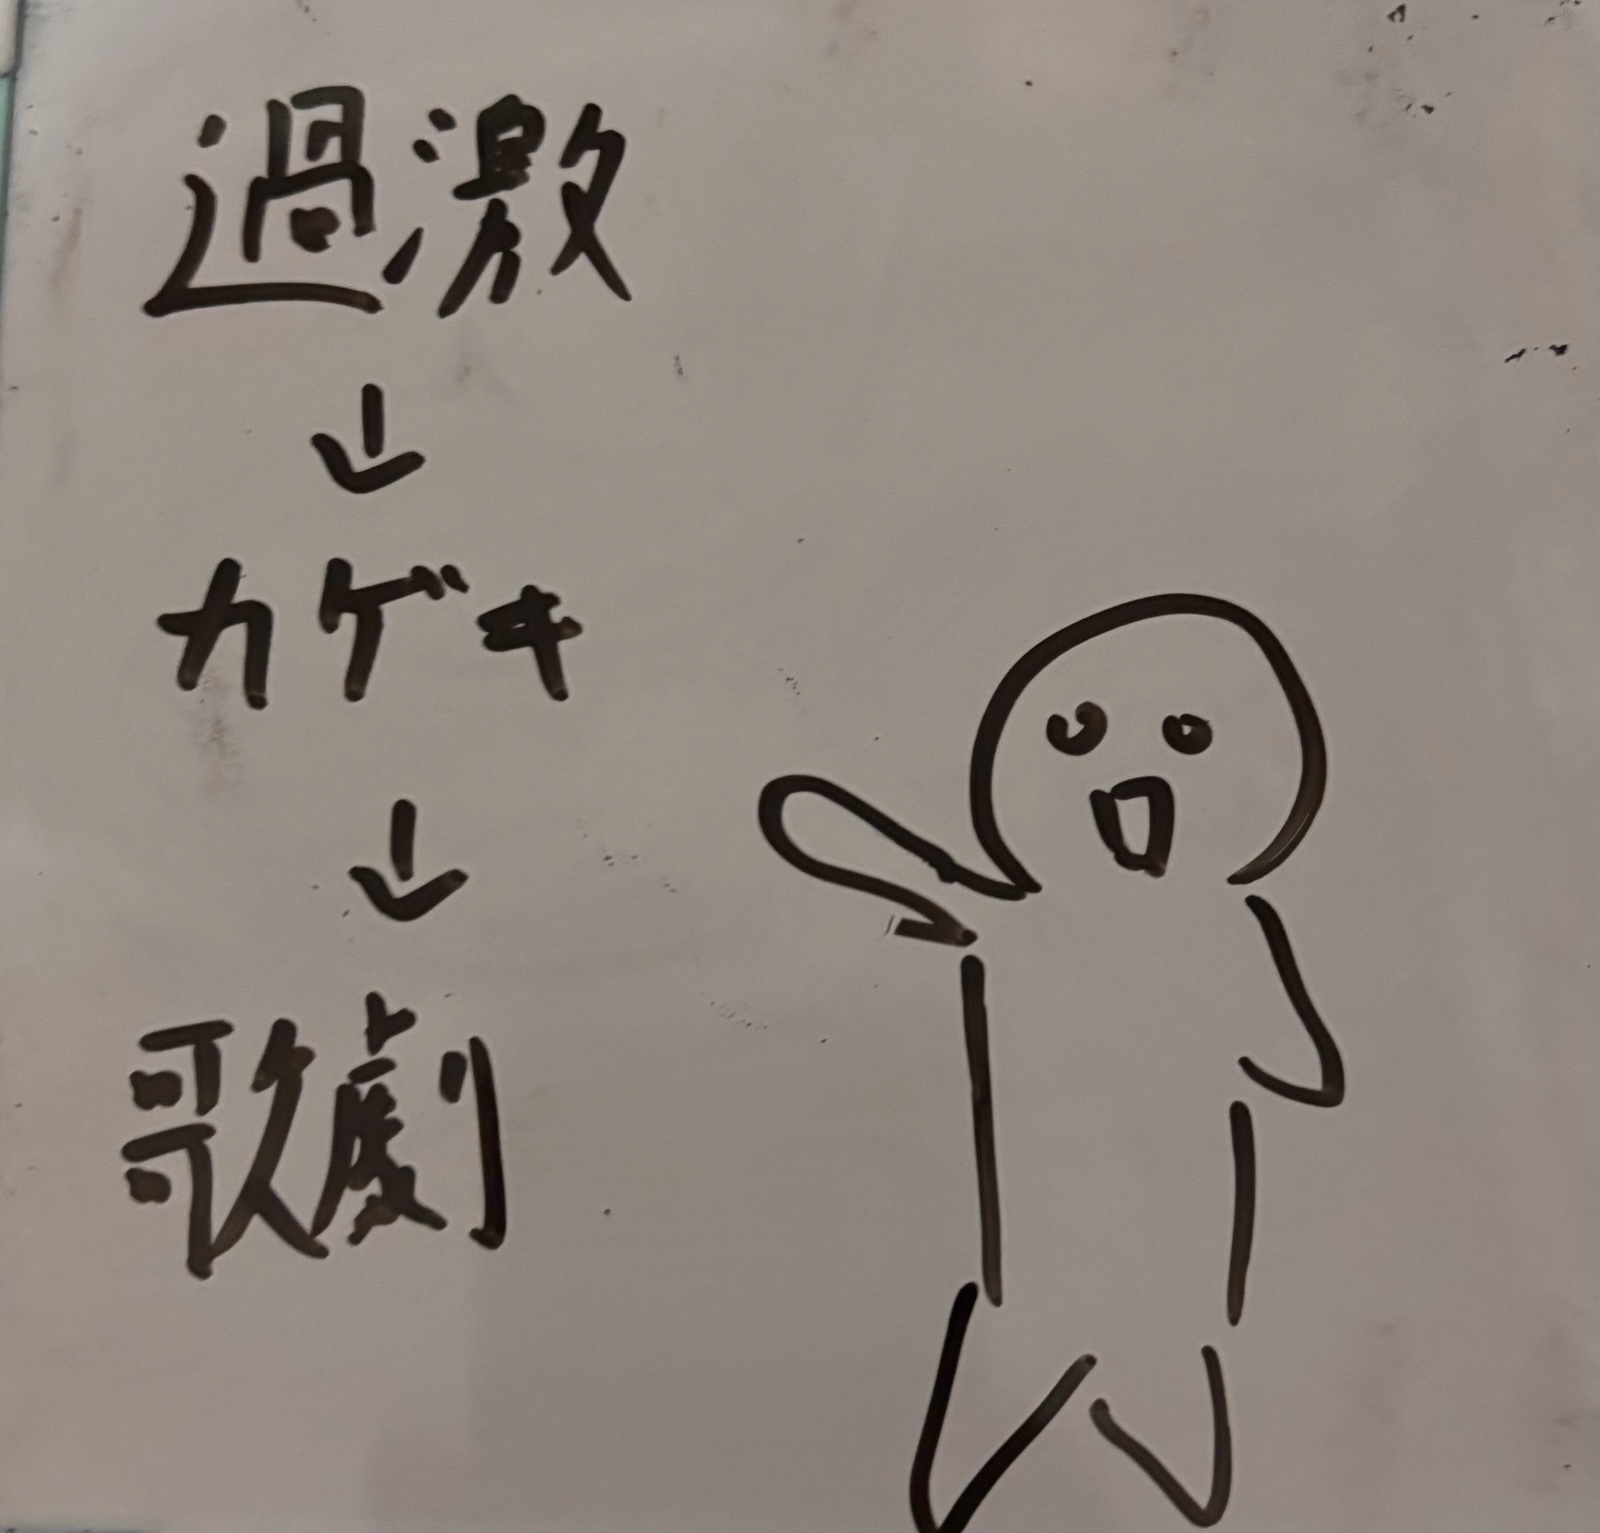 過激
↓
カゲキ
↓
歌劇